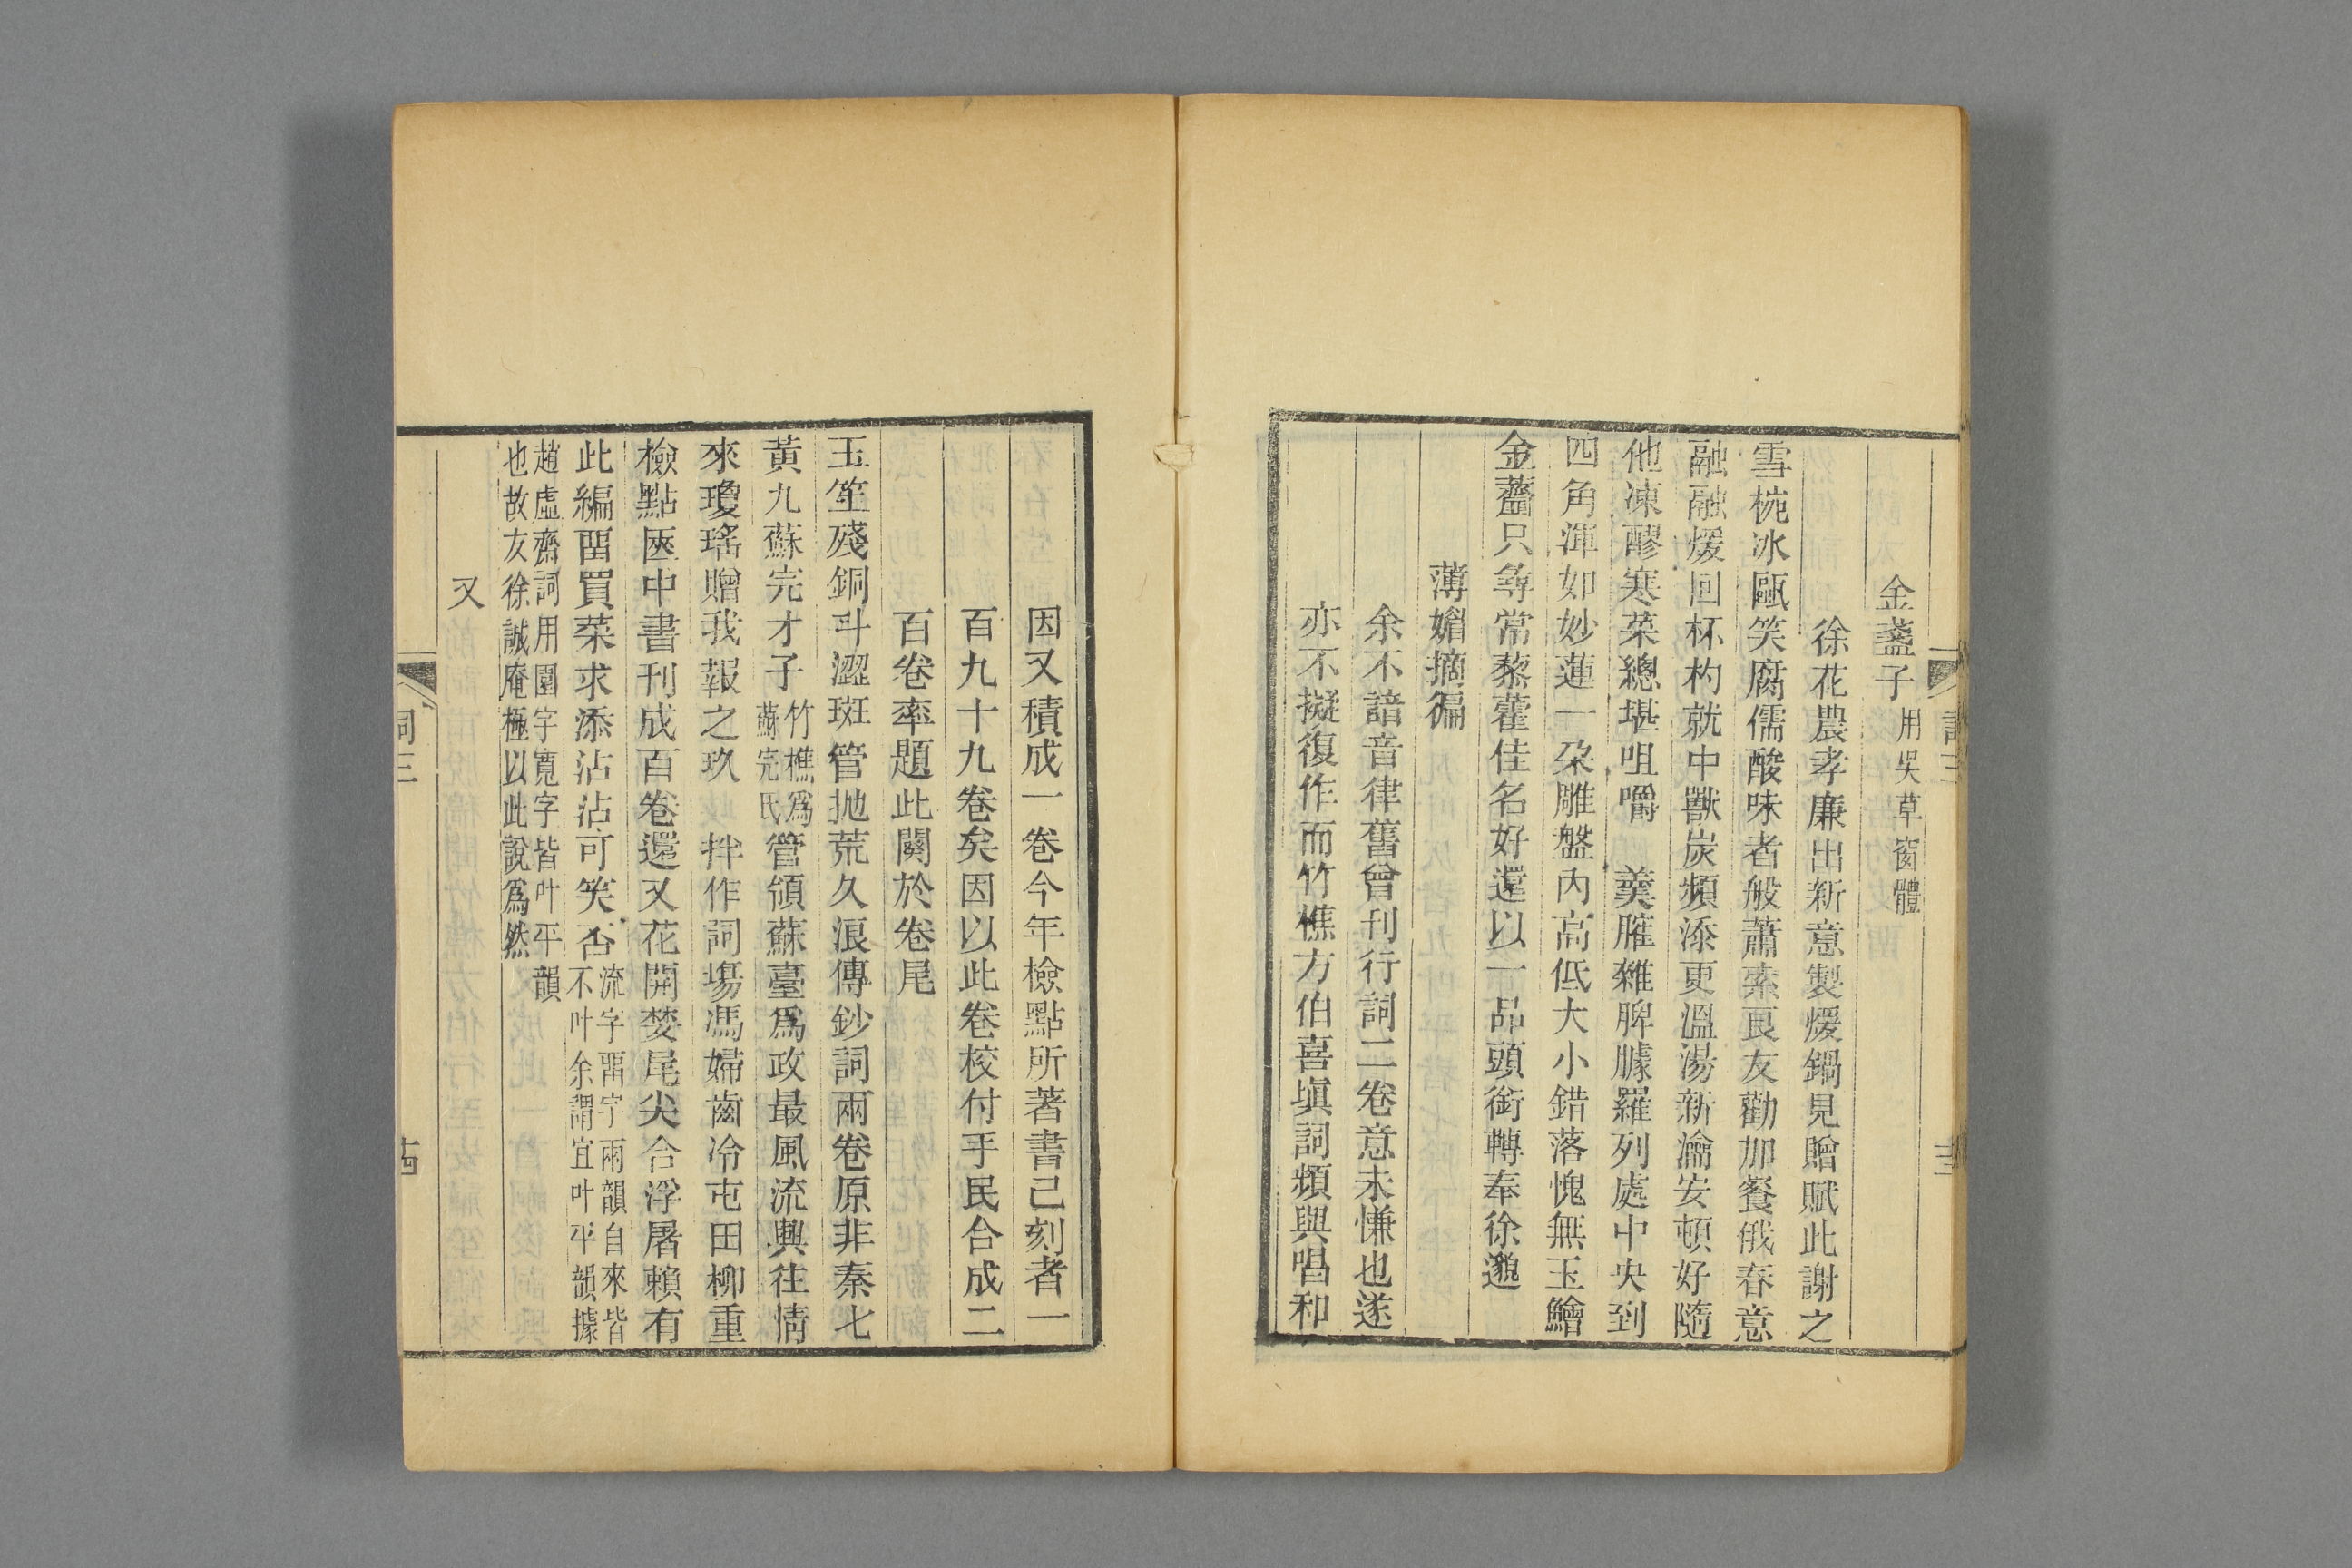 金盞子用吳草窗體
徐花農孝廉出新意製煖鍋見贈賦此謝之
雪椀冰甌笑腐儒酸味者般蕭索良友勸加餐俄春意
融融煖回杯杓就中獸炭頻添更溫湯新瀹安頓好隨
他凍醪寒菜總堪咀嚼 羹臛雜脾臄羅列處中央到
四角渾如妙蓮一朵雕盤內高低大小錯落愧無玉鱠
金虀只尋常藜藿佳名好還以一品頭銜轉奉徐邈
薄媚摘徧
余不諳音律舊曾刊行詞二卷意未慊也遂
亦不擬復作而竹樵方伯喜塡詞頻與唱和
因又積成一卷今年檢點所著書已刻者一
百九十九卷矣因以此卷校付手民合成二
百卷率題此闋於卷尾
玉笙殘銅斗澀斑管拋荒久浪傳鈔詞兩卷原非秦七
黃九蘇完才子竹樵爲蘇完氏管領蘇臺爲政最風流興往情
來瓊瑤贈我報之玖 拌作詞場馮婦齒冷屯田柳重
檢點匧中書刊成百卷還又花開婪尾尖合浮屠賴有
此編畱買菜求添沾沾可笑否流字畱字兩韻自來皆不叶余謂宜叶平韻據
趙虛齋詞用圜字寬字皆叶平韻
也故友徐誠庵極以此說爲然
又
詞三
十四